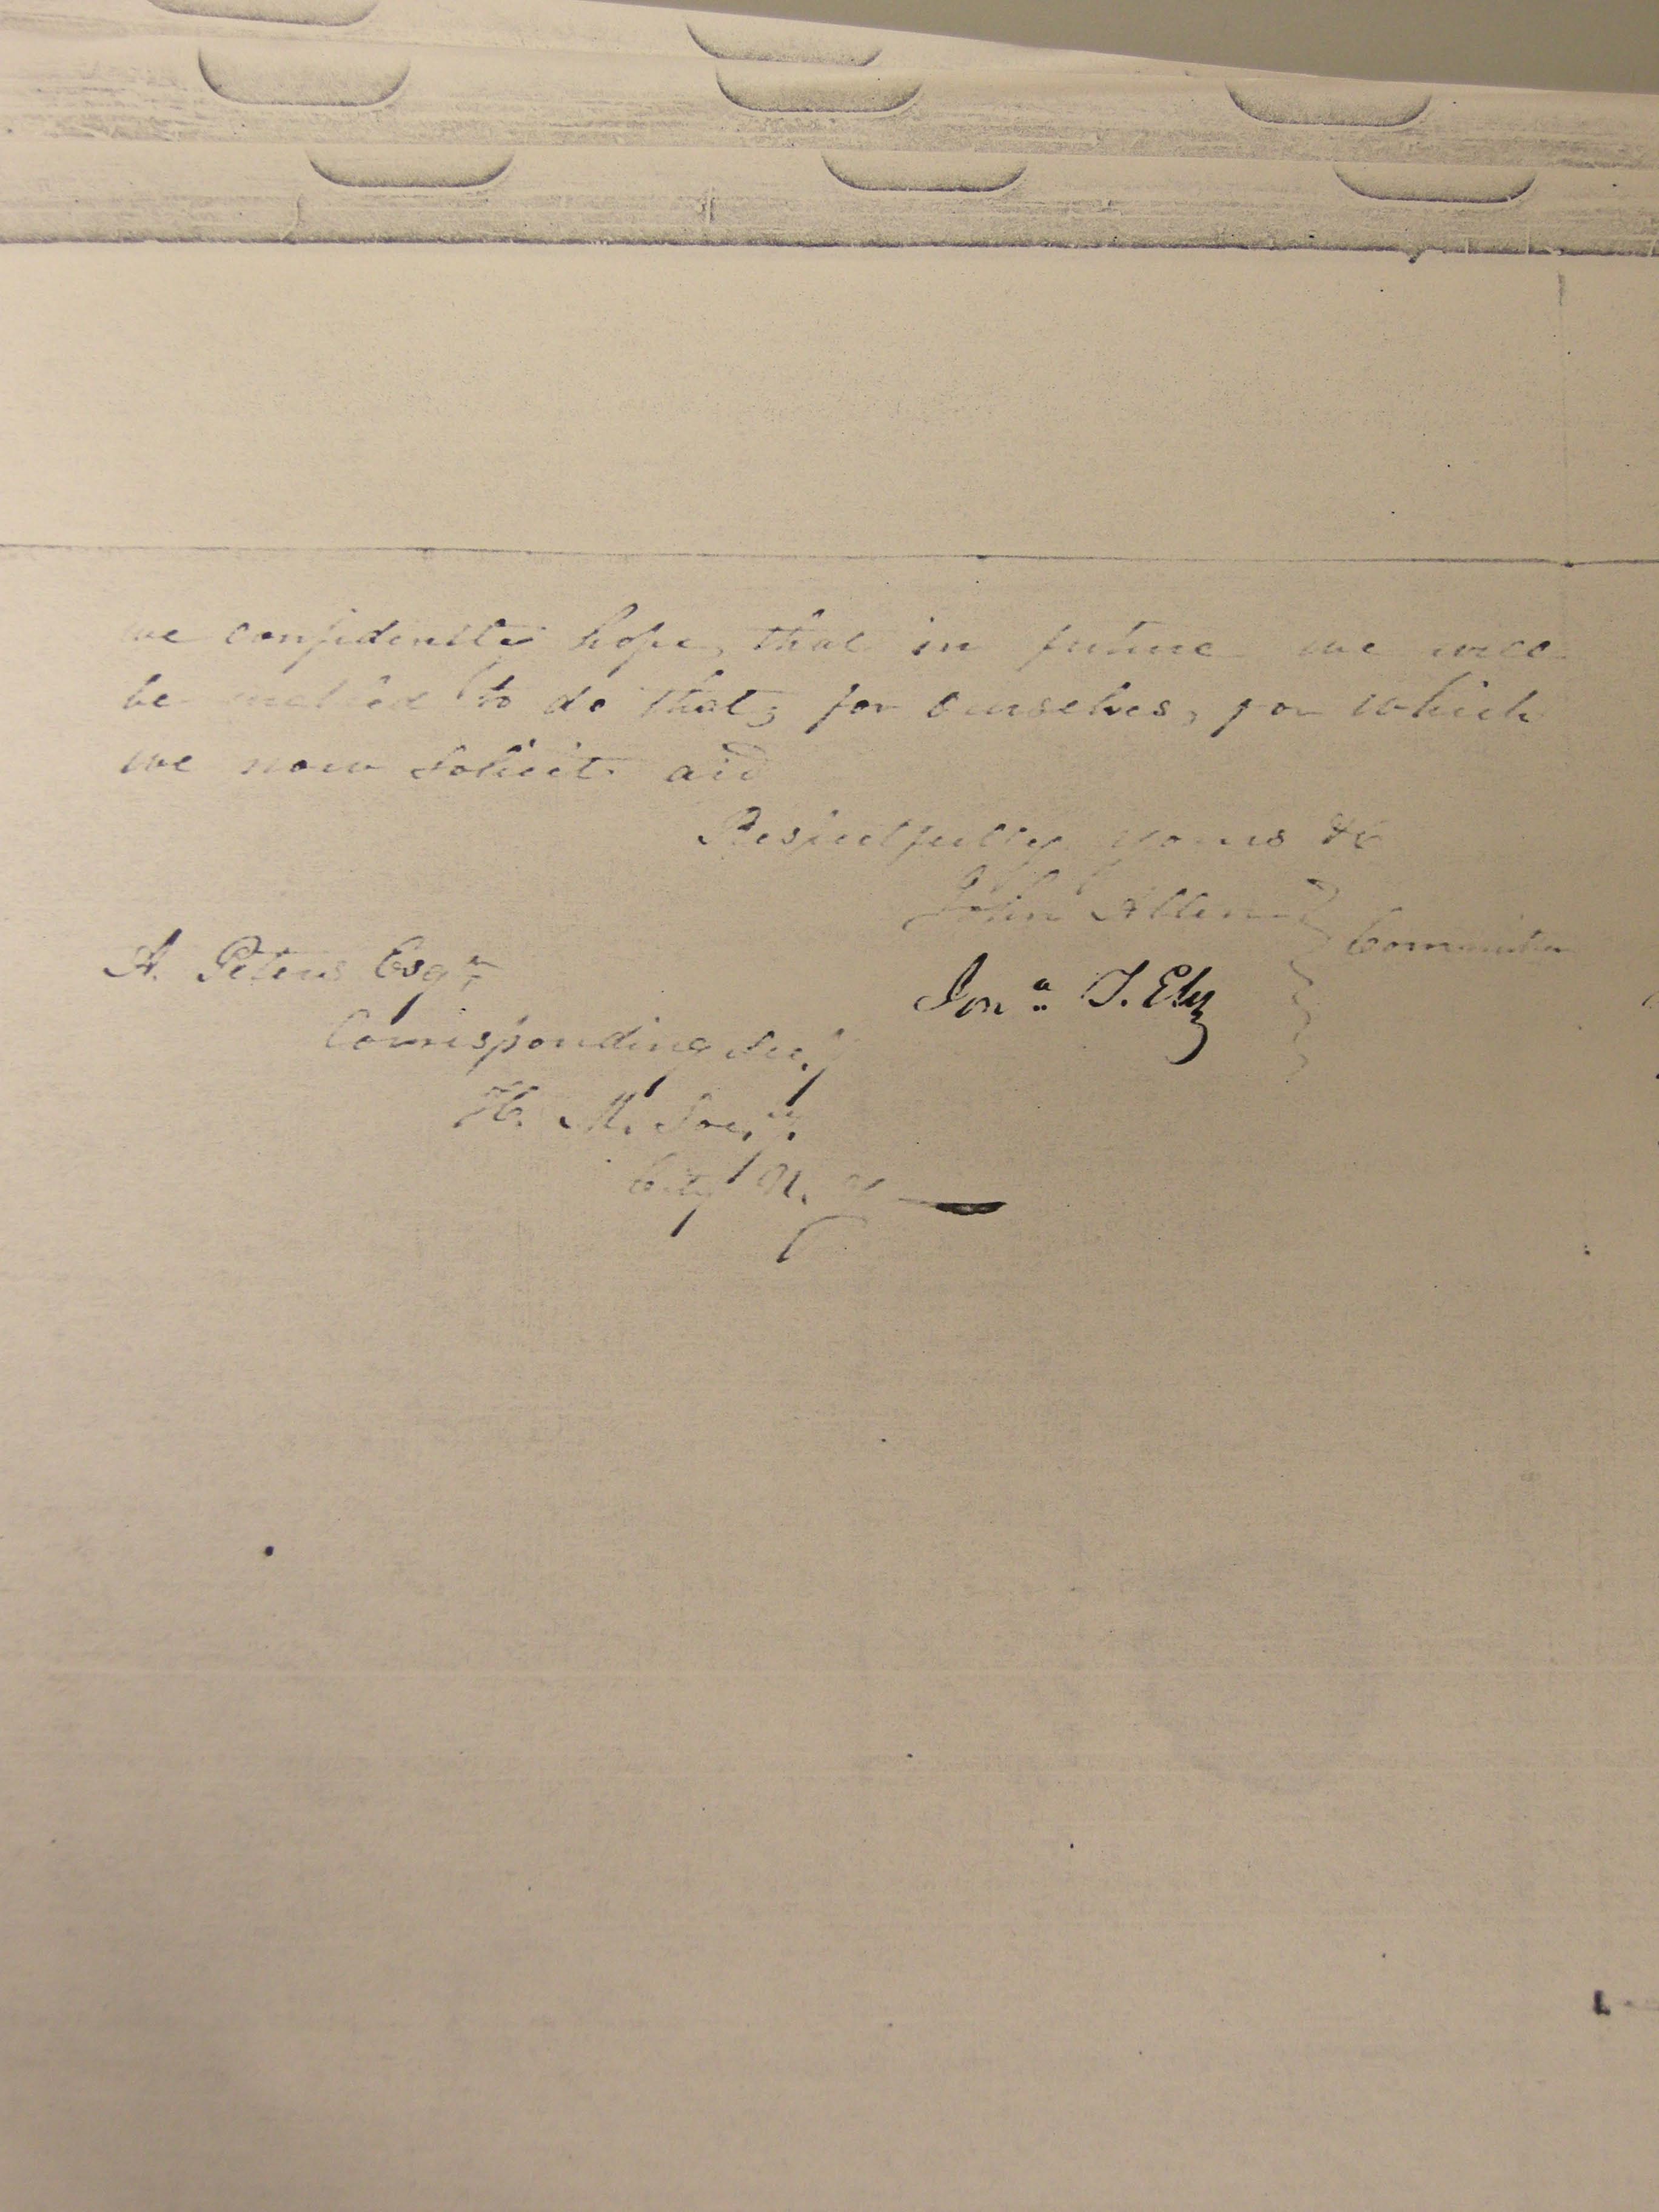 we confidently hope, that in future we will
be enabled to do that, for ourselves, for which
we now solicit aid
Respectfully yours &c
John Allen } Committee
A. Peters Esqr
Jona. T. Ely
Corrisponding Secy
H. M. Socy.
City N. Y